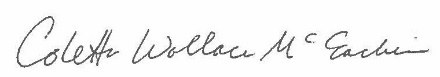 Colette Wallace McEachin